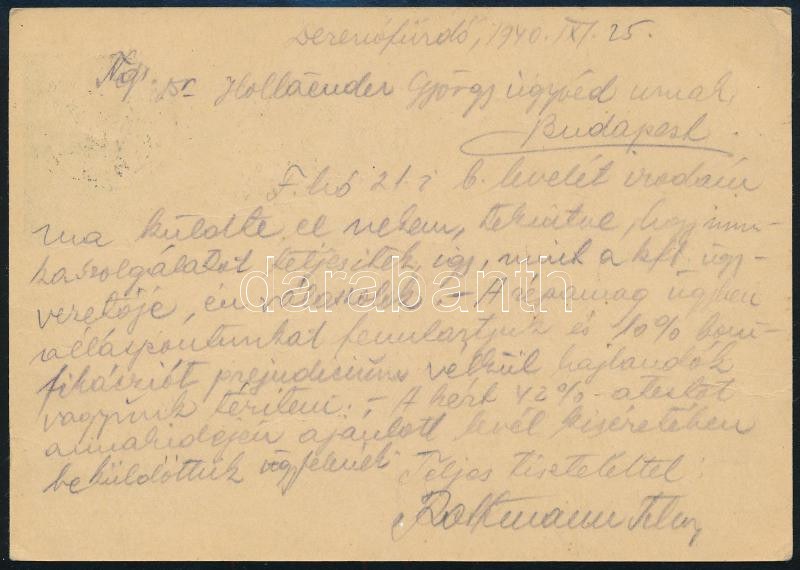 1940. XI. 25.
Ngs. Dr Hollaender György ügyvéd urnak,
Budapest.
F. hó 21-i b. levelét irodám
ma küldte el nekem, tekintve, hogy mun-
kaszolgálatot teljesitek, igy, mint a kft. ügy-
vezetője, én válaszolok. - A répamag ügyben
álláspontunkat fenntartjuk és 10% boni-
fikációt prejudicium nélkül hajlandók
vagyunk tériteni. - A kért 42%-atestot
annakidején ajánlott levél kiséretében
beküldöttük ügyfelének
Teljes tisztelettel:
darabanth